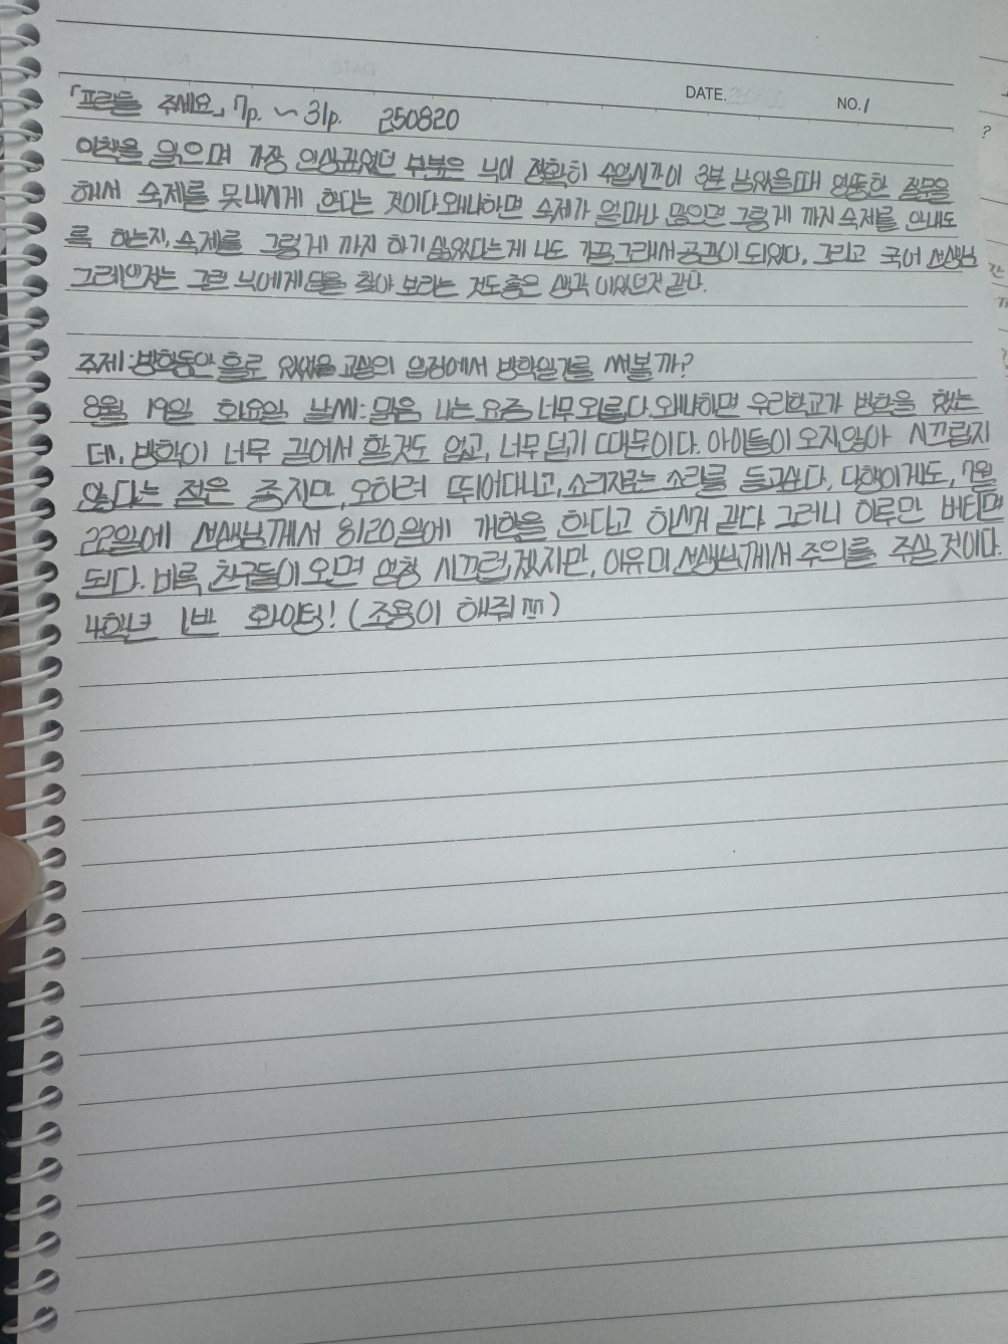 DATE. NO. 1
「프린들 주세요」 7p. ~ 31p. 250820
이책을 읽으며 가장 인상깊었던 부분은 닉이 정확히 수업시간이 3분 남았을때 엉뚱한 질문을
해서 숙제를 못내시게 한다는 것이다. 왜냐하면 숙제가 얼마나 많으면 그렇게 까지 숙제를 안내도
록 하는지, 숙제를 그렇게 까지 하기 싫었다는게 나도 가끔 그래서 공감이 되었다. 그리고 국어 선생님
그레인저는 그런 닉에게 답을 찾아 보라는 것도 좋은 생각 이었던것 같다.
주제: 방학동안 홀로 있었을 교실의 입장에서 방학일기를 써볼까?
8월 19일 화요일 날씨: 맑음 나는 요즘 너무 외롭다. 왜냐하면 우리학교가 방학을 했는
데, 방학이 너무 길어서 할것도 없고, 너무 덥기 때문이다. 아이들이 오지않아 시끄럽지
않다는 점은 좋지만, 오히려 뛰어다니고, 소리지르는 소리를 듣고싶다. 다행이게도, 7월
22일에 선생님께서 8/20일에 개학을 한다고 하신거 같다. 그러니 하루만 버티면
된다. 비록 친구들이 오면 엄청 시끄럽겠지만, 이유미 선생님께서 주의를 주실 것이다.
4학년 1반 화이팅! (조용이 해줘ㅠㅠ)
?